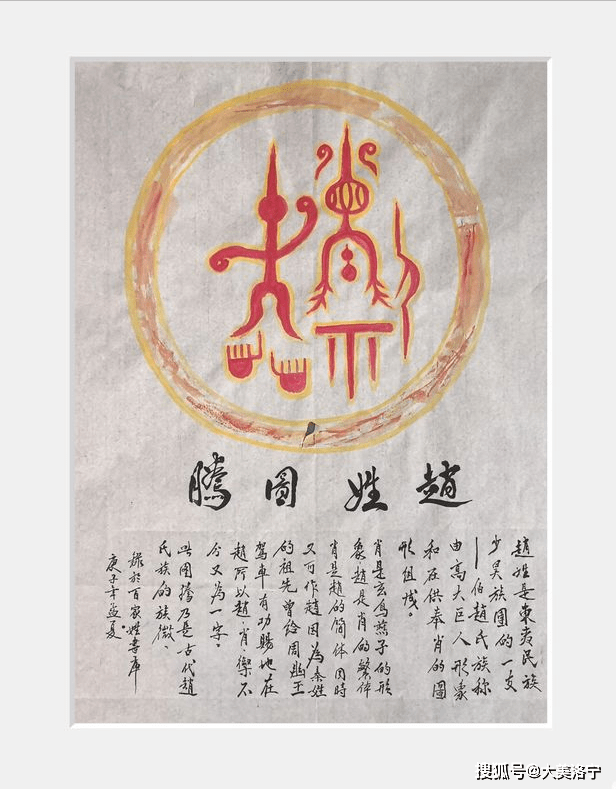 趙姓圖騰
趙姓是東夷民族
少昊族團的一支
—伯趙氏族称
由高大巨人形象
和在供奉肖的圖
形组成。
肖是玄鸟燕子的形
象,趙是肖的繁体
肖是趙的简体同時
又可作趙因為秦姓
的祖先曾给周幽王
駕車有功赐地在
趙所以趙·肖·不
分又為一字。
此圖騰乃是古代趙
民族的族徽。
錄於百家姓書库
庚子年孟夏。
搜狐号@大美洛宁